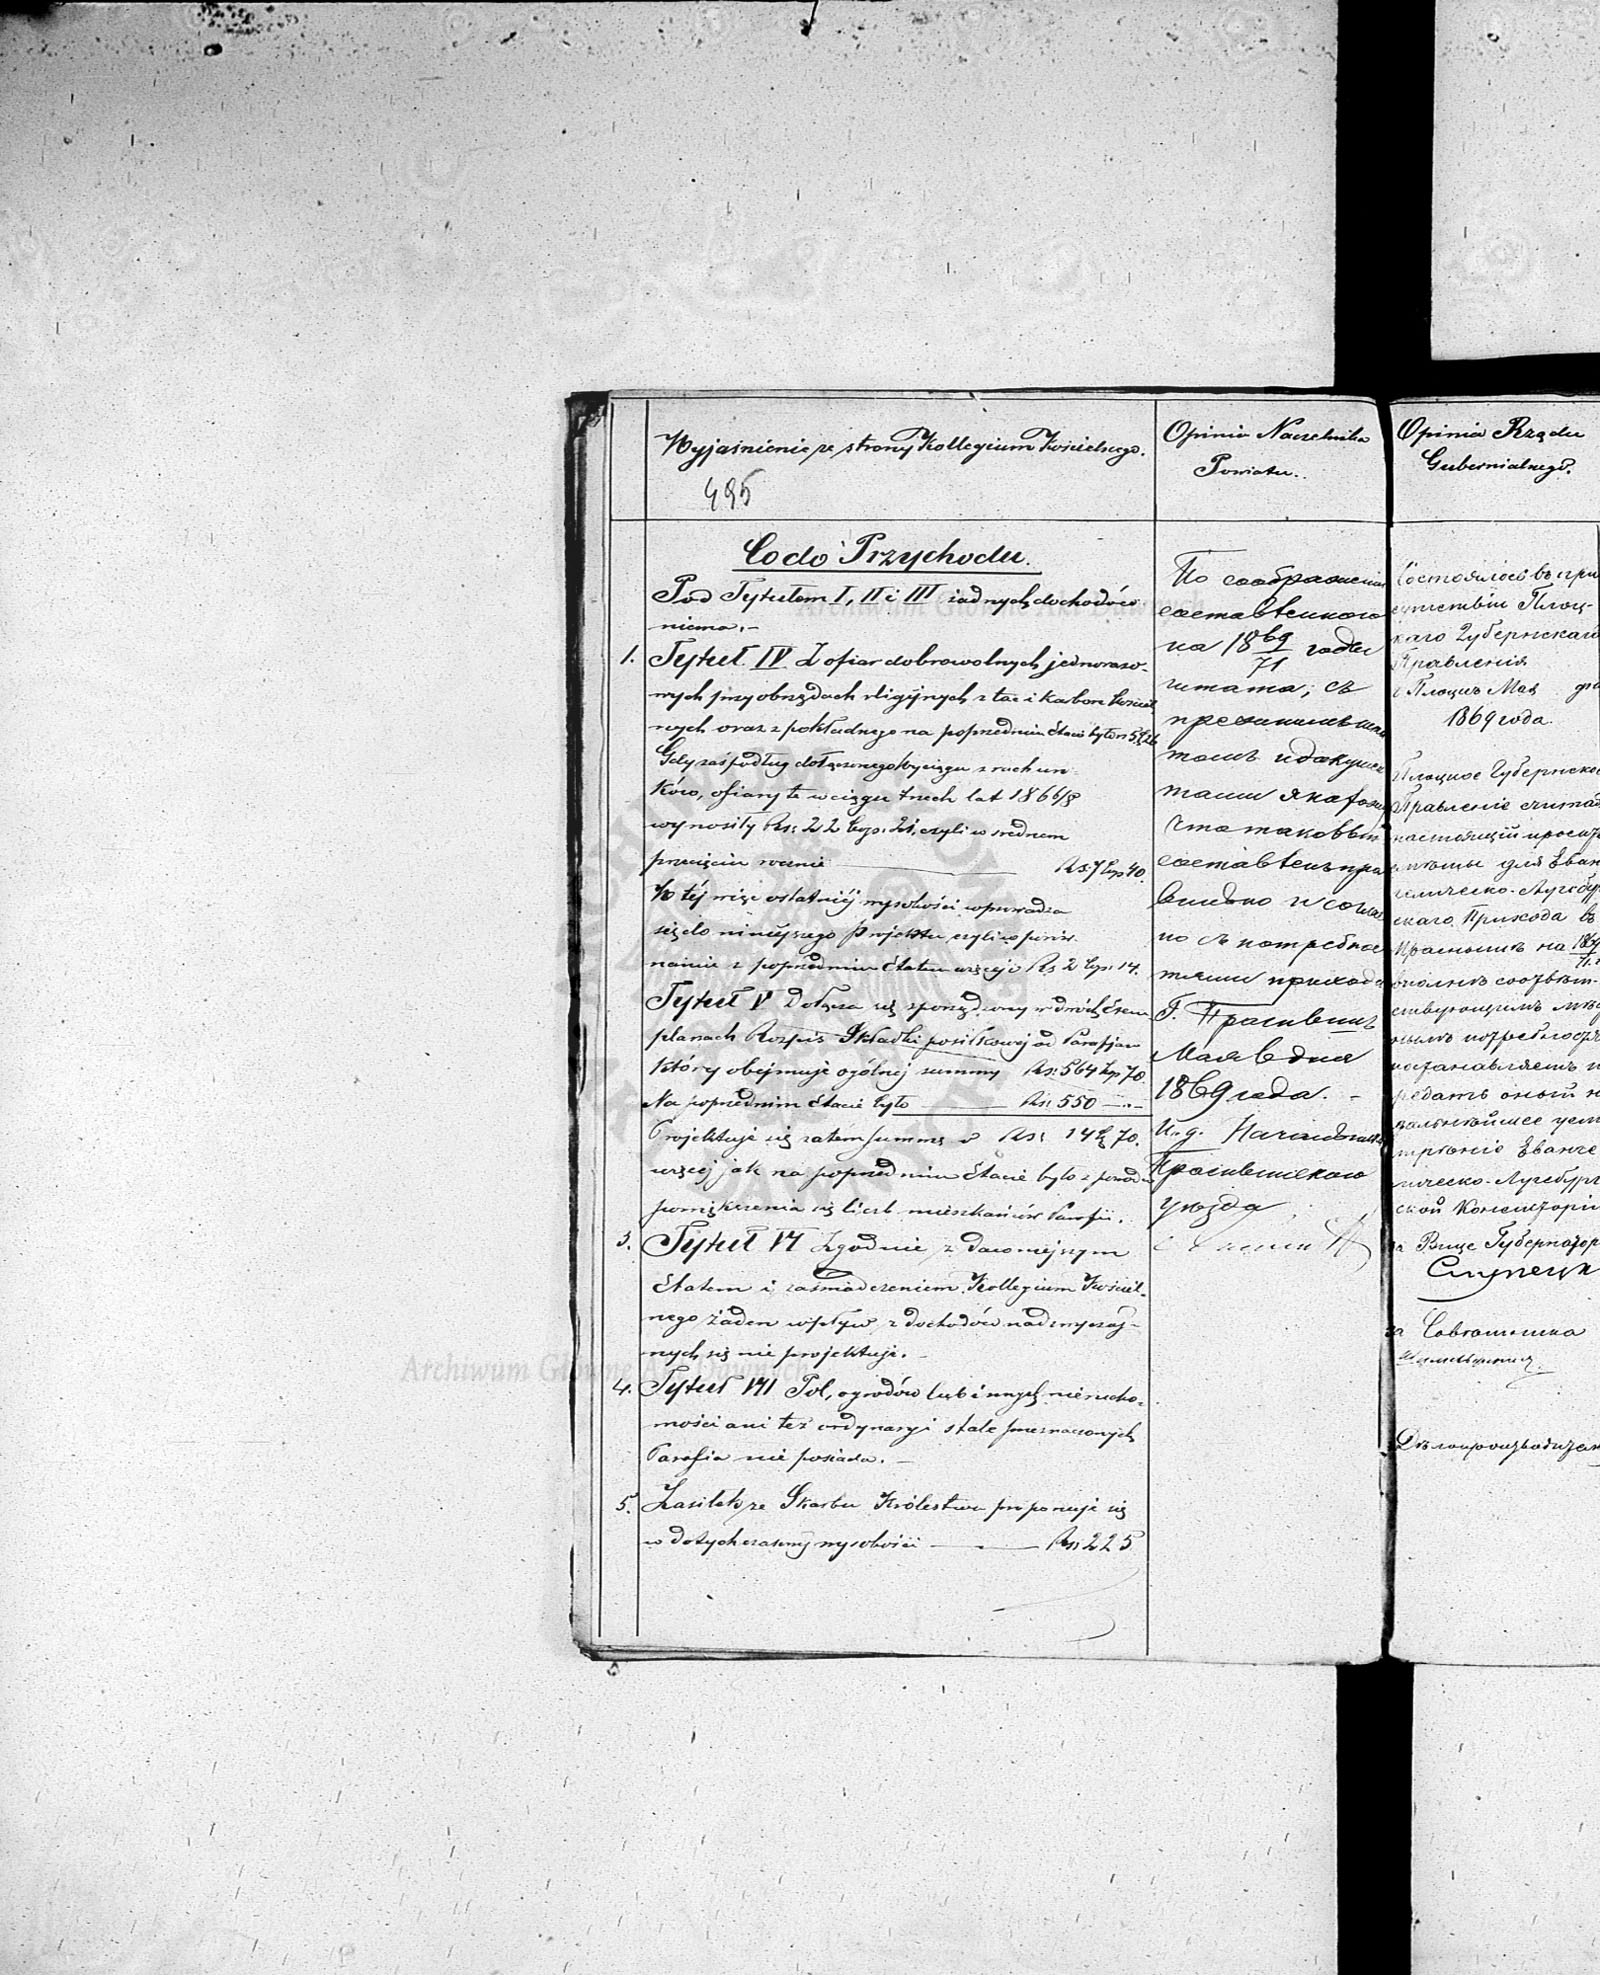 Wyjaśnienie ze strony Kollegium Kościelnego.
495
Co do Przychodu.
Pod Tytułem I, II i III żadnych dochodów
niema. –
1. Tytuł IV. Z ofiar dobrowolnych jednorazo-
wych przy obrzędach religijnych z tac i karbon kościel
nych oraz z pokładnego na poprzednim Etacie było rs 5
Gdy zaś podług dołączonego Wyciągu z rachun
ków, ofiary te w ciągu trzech lat 1866/8
wynosiły Rs: 22 kop. 21, czyli w średnem
przecięciu rocznie Rs 7 kop 40.
W tej więc ostatniej wysokości wprowadza
się do niniejszego Projektu czyli w porów
naniu z poprzednim Etatem więcej o Rs 2 kop: 14.
Tytuł V Dołącza się sporządzony w dwóch Exem
planach Rozpis Składki posiłkowej od Parafjan
który obejmuje ogólnej summy Rs: 564 kop 70.
Na poprzednim Etacie było Rs: 550 –.–
Projektuje się zatem summę o Rs: 14 k 70.
więcej jak na poprzednim Etacie było z powodu
powiększenia się liczb mieszkańców Parafii.
3. Tytuł VI Zgodnie z dawniejszym
Etatem i zaświadczeniem Kollegium Kościel-
nego żaden wpływ z dochodów nadzwyczaj-
nych się nie projektuje. –
4. Tytuł VII Pól, ogrodów lub innych nierucho-
mości ani też ordynaryi stale przeznaczonych
Parafia nie posiada. –
5. Zasiłek ze Skarbu Królestwa proponuje się
w dotychczasowej wysokości Rs: 225
Opinia Naczelnika
Powiatu.
По соображении
составленного
на 1869/71 годы
штата, съ
што таковый
составленъ пра
вильно и соглас
но съ потребнос
тями прихода
Г. Праснышъ
Мая 6 дня
1869 года. –
И. д. Начальника
Праснышскаго
уѣзда
Opinia Rządu
Gubernialnego.
Состоялось въ при
сутствіи Плоц-
каго Губернскаго
Правленія
г Плоцкъ Мая дня
1869 года.
Плоцкое Губернское
Правленіе считая
настоящій проектъ
для Еван
гелическо-Аугсбург
скаго Прихода въ
Праснышъ на 1869/71
вполнѣ соотвѣт-
ствующимъ мѣст
нымъ потребностямъ
постановляетъ п
редать оный н
дальнѣйшее усм
трѣніе Еванге
лическо-Аугсбург
ской Консисторіи
за Вице Губернатор
за Совѣтника
Дѣлопроизводитель
Archiwum Główne Akt Dawnych